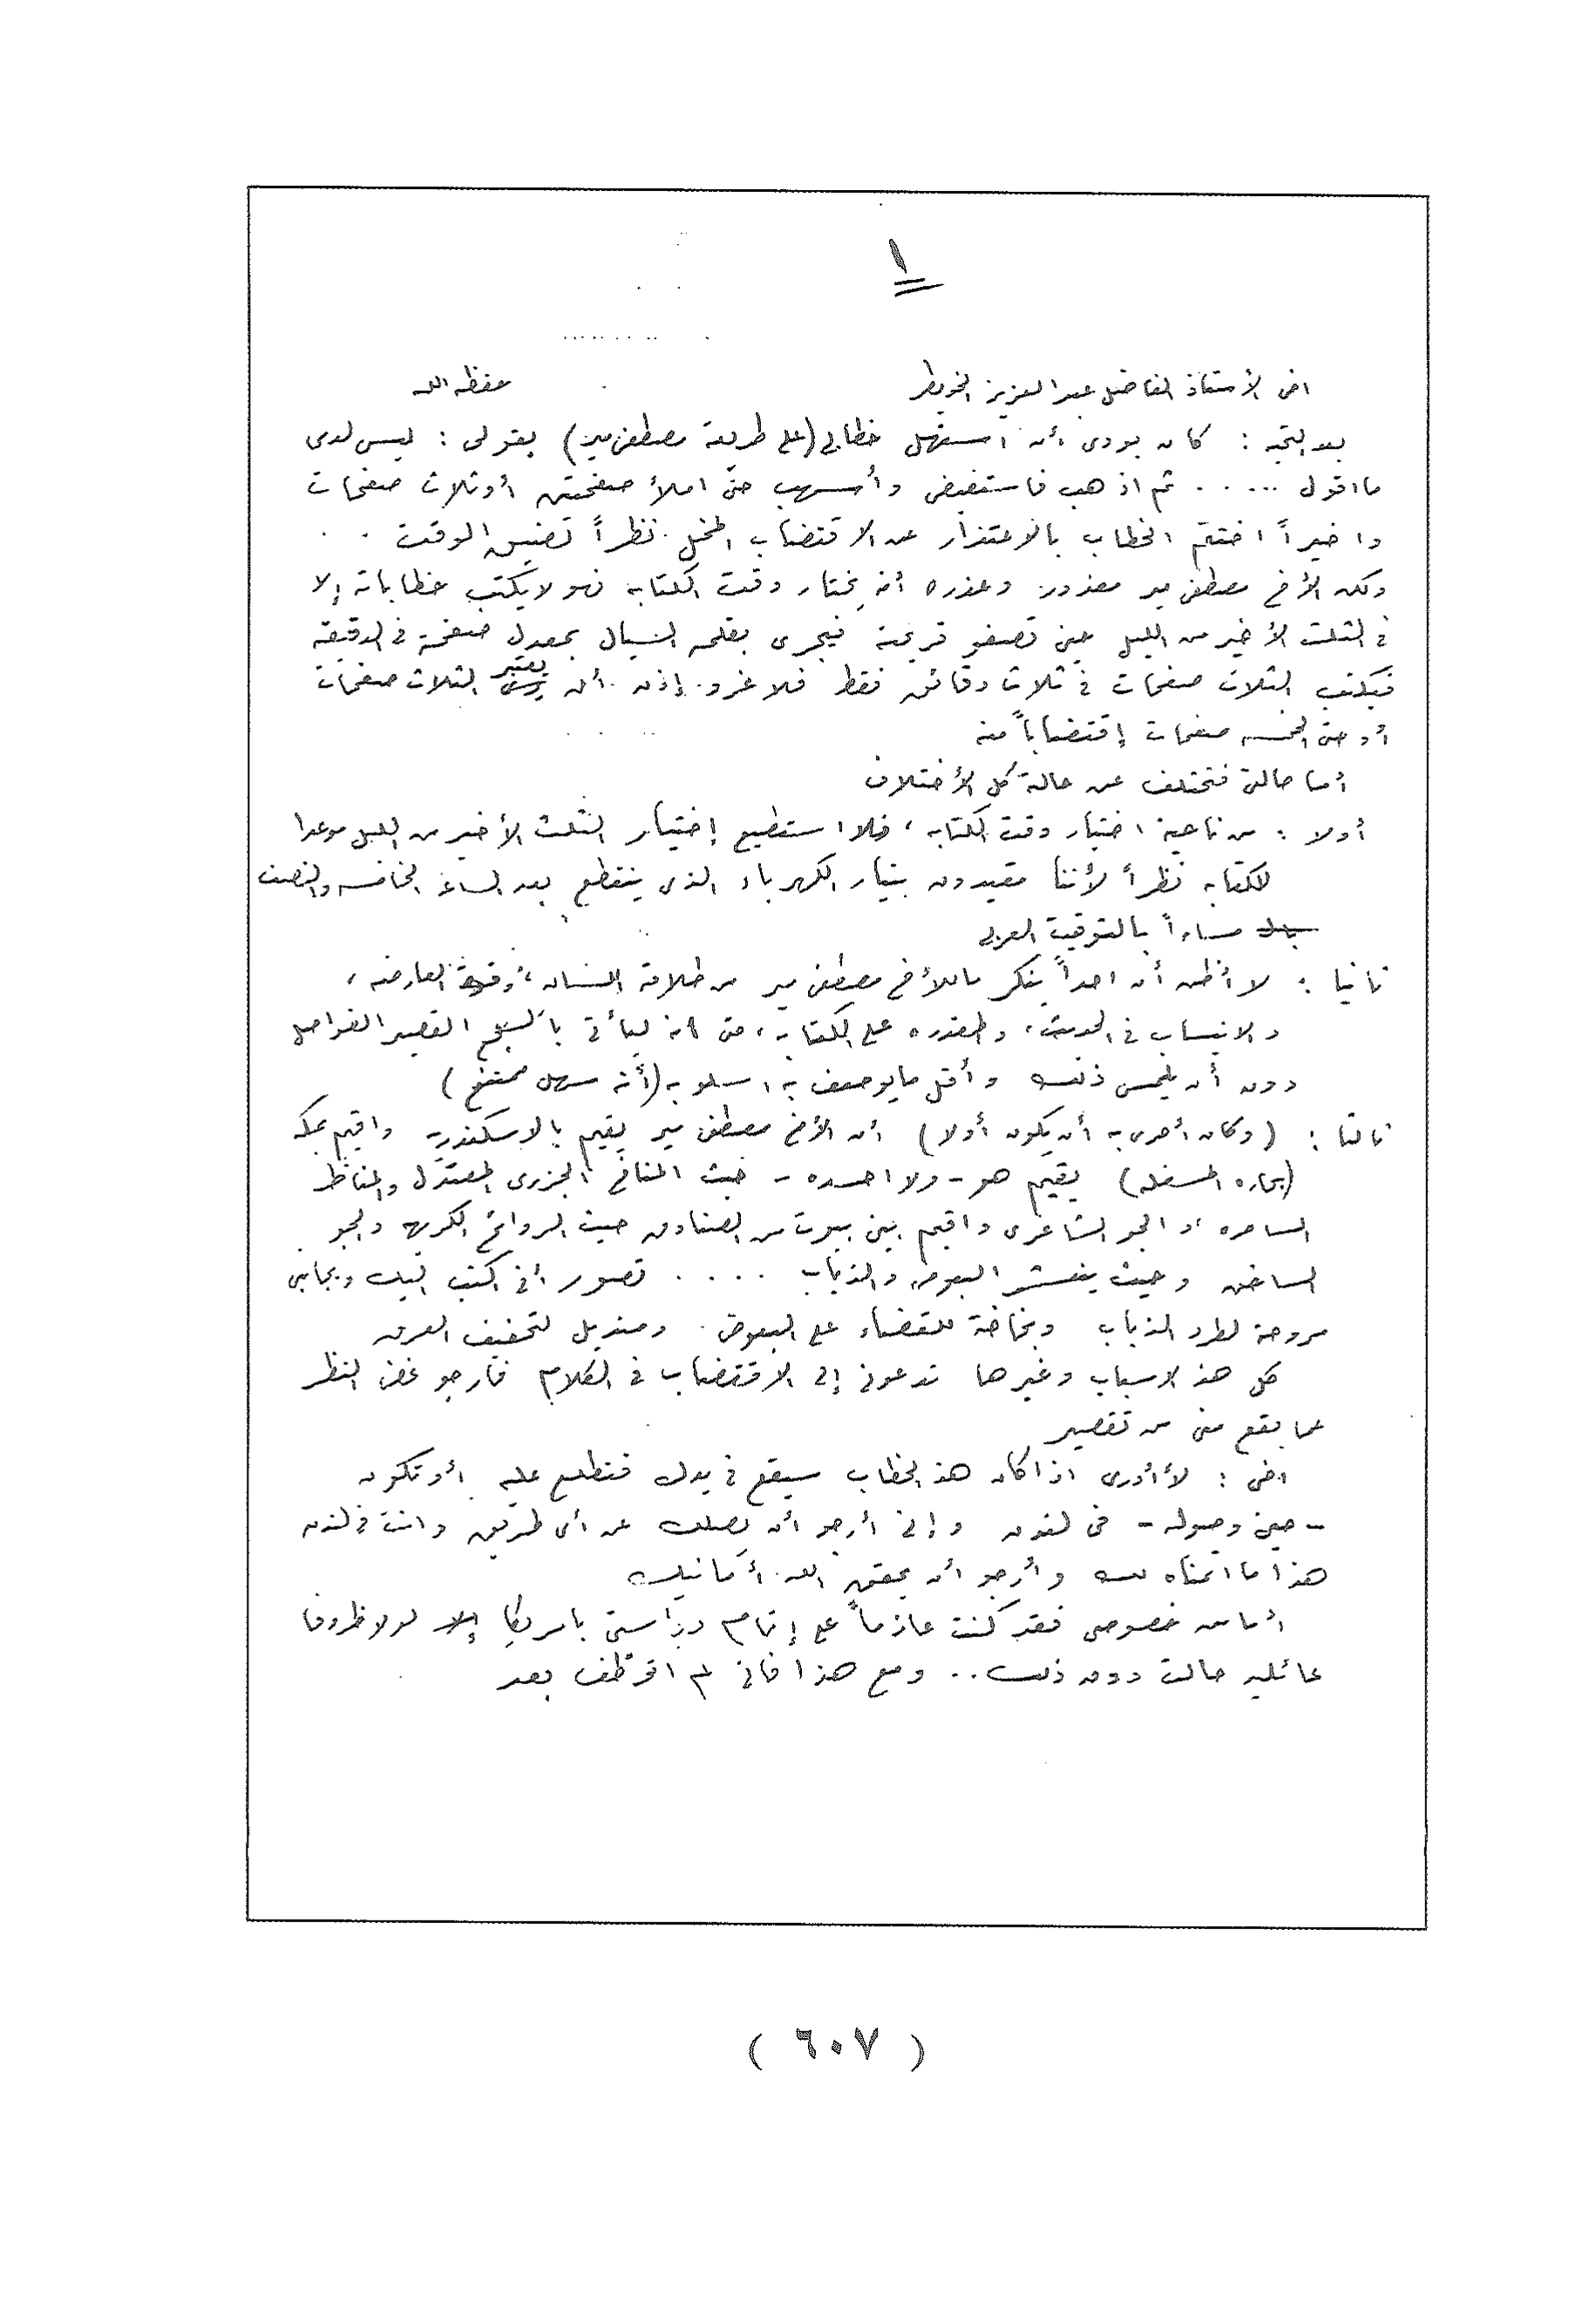 ١
اخى الأستاذ الفاضل عبدالعزيز الخويطر حفظه الله
بعد التحية : كان بودى أن استهل خطابى (على طريقة مصطفى مير) بقولى : ليس لدى
ما اقول ..... ثم اذهب فاستفيض وأسهب حتى املأ صفحتين أو ثلاث صفحات
واخيراً اختتم الخطاب بالاعتذار عن الاقتضاب المخل نظراً لضيق الوقت ..
ولكن الأخ مصطفى مير معذور وعذره أنه يختار وقت الكتابه فهو لا يكتب خطاباته إلا
فى الثلث الأخير من الليل حين تصفو قريحته فيجرى بقلمه السيال بمعدل صفحة فى الدقيقة
فيكتب الثلاث صفحات فى ثلاث دقائق فقط فلا غرو إذن أن يعتبر الثلاث صفحات
أو حتى الخمسه صفحات إقتضاباً منه
أما حالتى فتختلف عن حالته كل الأختلاف
أولا : من ناحية اختيار وقت الكتابه ، فلا استطيع إختيار الثلث الأخير من الليل موعدا
للكتابه نظراً لأننا مقيدون بتيار الكهرباء الذى ينقطع بعد الساعة الخامسه والنصف
مساءاً بالتوقيت العربى
ثانيا : لا أظن أن احداً ينكر ما للأخ مصطفى مير من طلاقة اللسان ، وقوة العارضه ،
والانسياب فى الحديث ، والمقدره على الكتابه ، حتى انه ليأتى بالسجع القصير الفواصل
دون أن يلمس ذلك وأقل ما يوصف به اسلوبه (أنه سهل ممتنع)
ثالثا : (وكان أحرى به أن يكون أولا) أن الأخ مصطفى مير يقيم بالاسكندريه واقيم بمكه
(بحاره المسفله) يقيم هو - ولا احسده - حيث المناخ الجزرى المعتدل والمناظر
الساحره والجو الشاعرى واقيم بين بيوت من الصنادق حيث الروائح الكريهه والجو
الساخن وحيث ينتشر البعوض والذباب .... تصور أنى اكتب اليك وبجانبى
مروحة لطرد الذباب وبخاخة للقضاء على البعوض ومنديل لتجفيف العرق
كل هذه الاسباب وغيرها تدعونى إلى الاقتضاب فى الكلام فارجو غض النظر
عما يقع منى من تقصير
اخى : لا أدرى اذا كان هذا الخطاب سيقع فى يدك فتطلع عليه أو تكون
- حين وصوله - فى لندن وإنى أرجو أن يصلك عن أى طريق وانت فى لندن
هذا ما اتمناه لك وأرجو أن يحقق الله أمانيك
أما من خصوصى فقد كنت عازماً على إتمام دراستى بامريكا لولا ظروفا
عائليه حالت دون ذلك .. ومع هذا فانى لم اتوظف بعد
( ٦٠٧ )